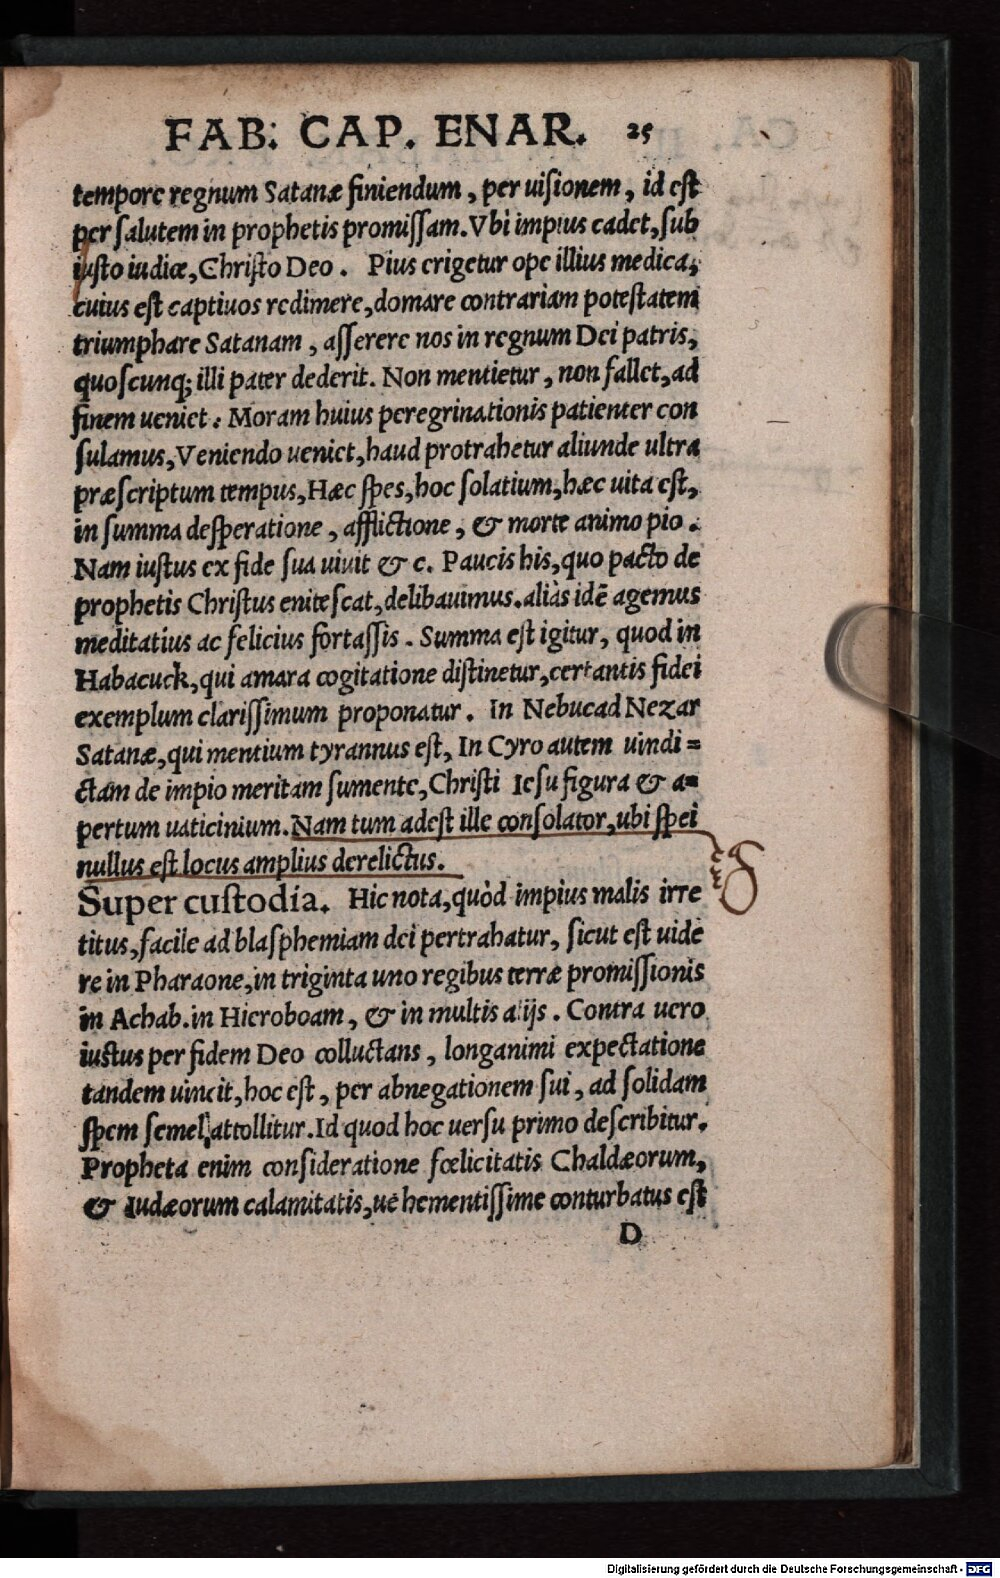 FAB: CAP. ENAR. 25
tempore regnum Satanæ finiendum, per uisionem, id est
per salutem in prophetis promissam. Vbi impius cadet, sub
iusto iudice, Christo Deo. Pius erigetur ope illius medica,
cuius est captiuos redimere, domare contrariam potestatem
triumphare Satanam, asserere nos in regnum Dei patris,
quoscunq; illi pater dederit. Non mentietur, non fallet, ad
finem ueniet: Moram huius peregrinationis patienter con
sulamus, Veniendo ueniet, haud protrahetur aliunde ultra
præscriptum tempus, Hæc spes, hoc solatium, hæc uita est,
in summa desperatione, afflictione, & morte animo pio.
Nam iustus ex fide sua uiuit & c. Paucis his, quo pacto de
prophetis Christus enitescat, delibauimus. aliàs idē agemus
meditatius ac felicius fortassis. Summa est igitur, quod in
Habacuck, qui amara cogitatione distinetur, certantis fidei
exemplum clarissimum proponatur. In Nebucad Nezar
Satanæ, qui mentium tyrannus est, In Cyro autem uindi=
ctam de impio meritam sumente, Christi Iesu figura & a=
pertum uaticinium. Nam tum adest ille consolator, ubi spei
nullus est locus amplius derelictus.
Super custodia. Hic nota, quòd impius malis irre
titus, facile ad blasphemiam dei pertrahatur, sicut est uide
re in Pharaone, in triginta uno regibus terræ promissionis
in Achab. in Hieroboam, & in multis alijs. Contra uero
iustus per fidem Deo colluctans, longanimi expectatione
tandem uincit, hoc est, per abnegationem sui, ad solidam
spem semel attollitur. Id quod hoc uersu primo describitur.
Propheta enim consideratione fœlicitatis Chaldæorum,
& Iudæorum calamitatis, uehementissime conturbatus est
D
Digitalisierung gefördert durch die Deutsche Forschungsgemeinschaft - DFG